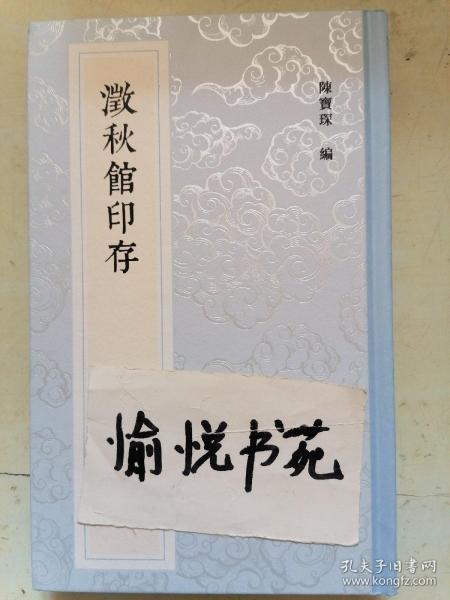 澂秋館印存
陳寶琛 編
愉悦书苑
孔夫子旧书网
www.kongfz.com